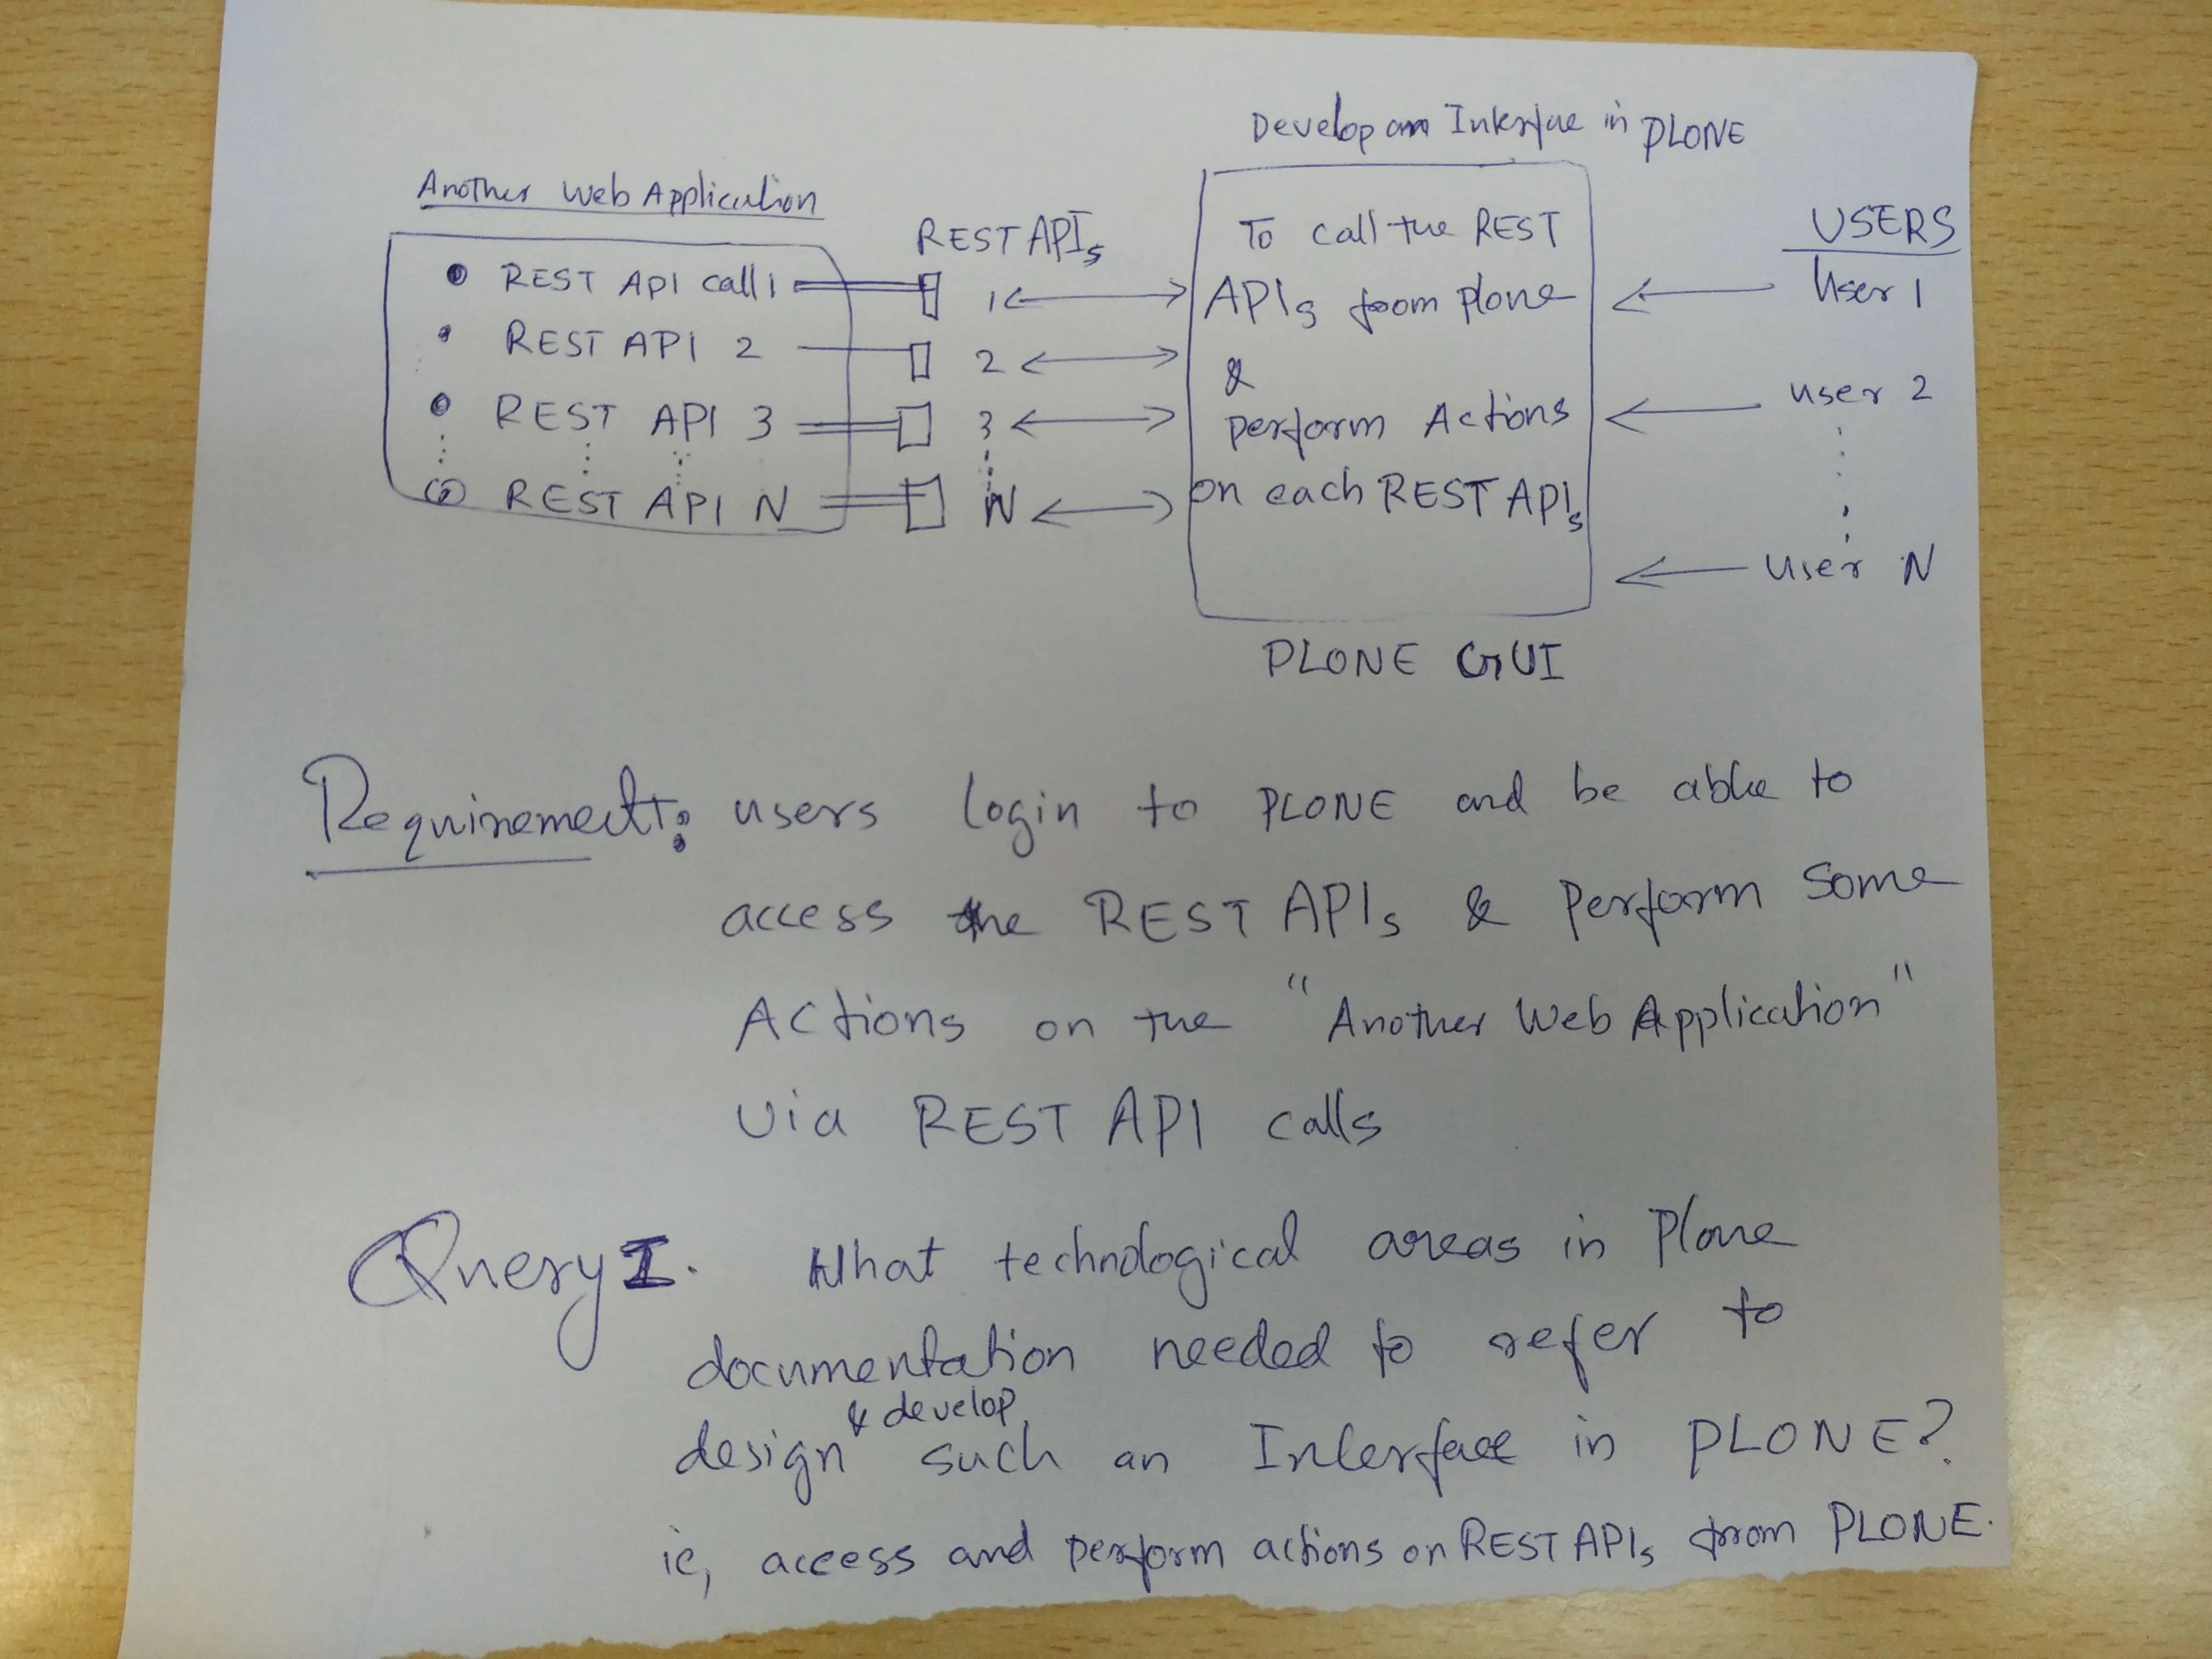 Develop an Interface in PLONE
Another Web Application
REST APIs
USERS
REST API call 1
1
REST API 2
2
REST API 3
3
REST API N
N
To call the REST
APIs from plone
&
perform Actions
on each REST APIs
User 1
user 2
User N
PLONE GUI
Requirement: users login to PLONE and be able to
access the REST APIs & Perform Some
Actions on the "Another Web Application"
via REST API calls
Query I. What technological areas in Plone
documentation needed to refer to
& develop
design such an Interface in PLONE?
ie, access and perform actions on REST APIs from PLONE.